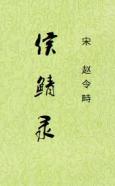 宋 赵令畤
侯鲭录